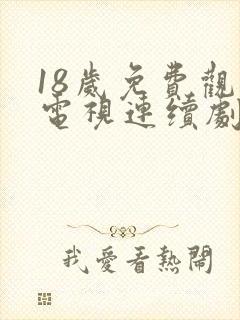 18歲免費觀
電視連續劇
我愛看熱鬧